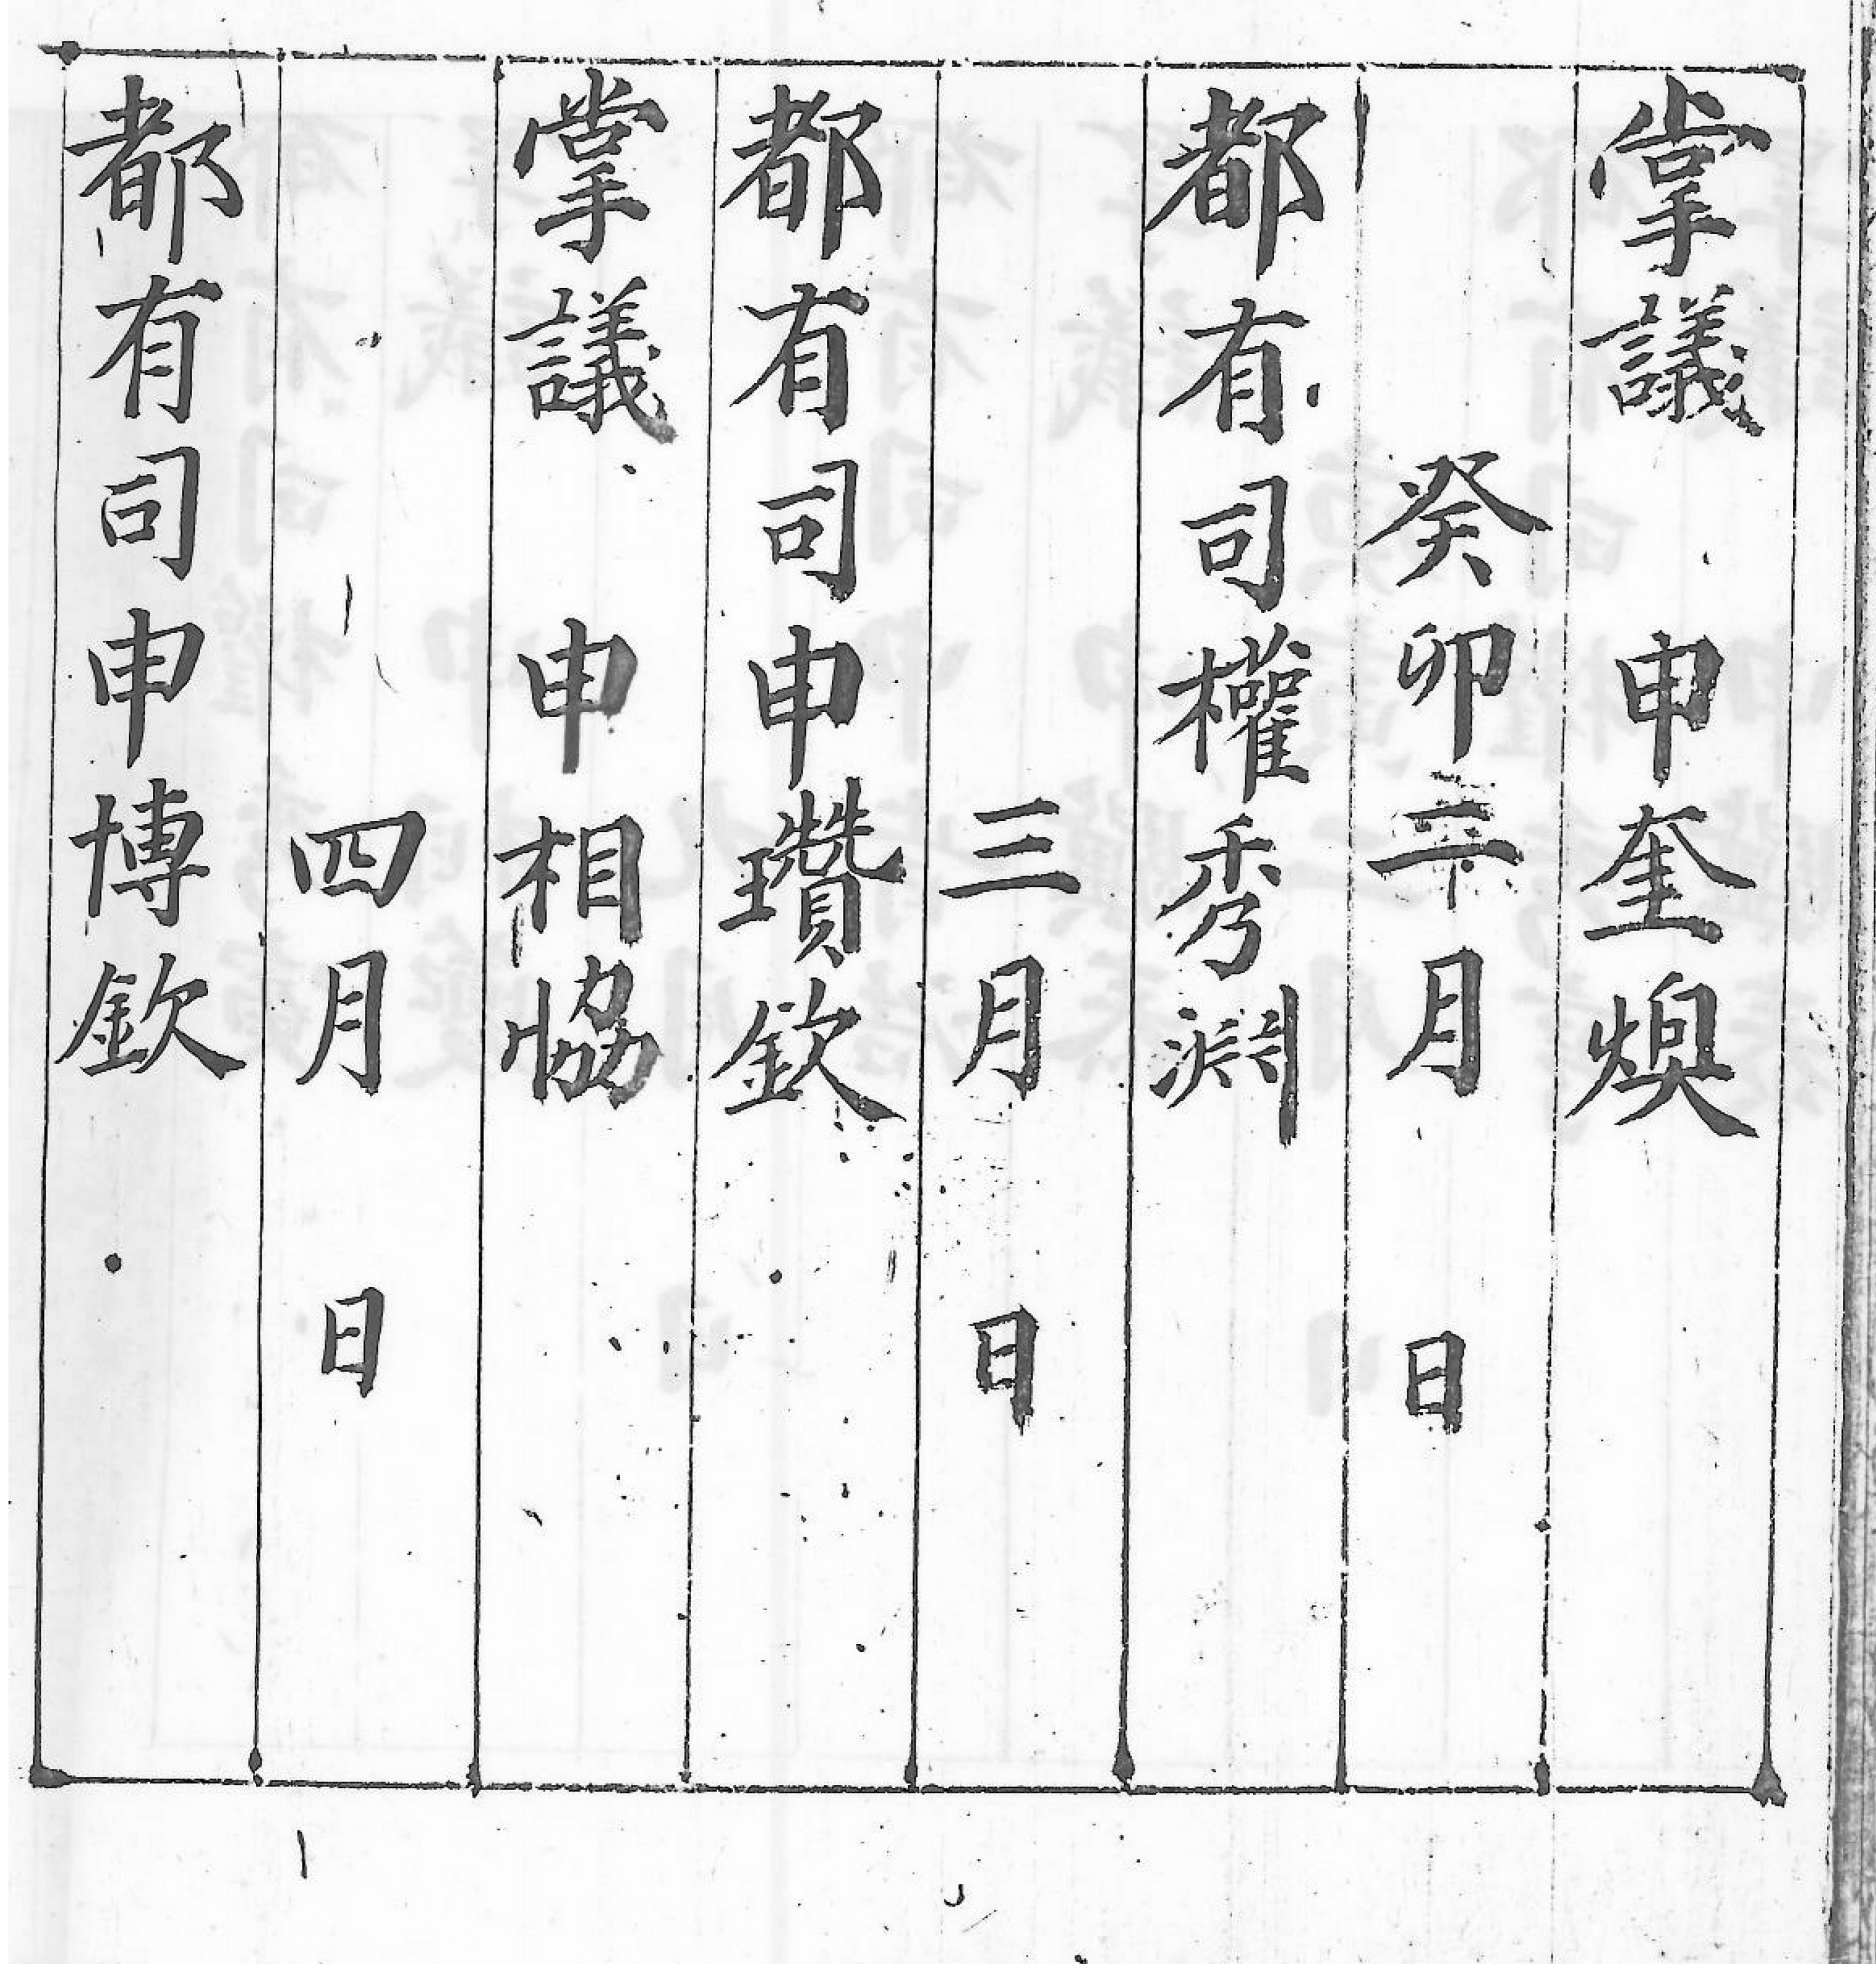 掌議 申奎煥
癸卯二月 日
都有司權秀淵
三月 日
都有司申瓚欽
掌議 申相協
四月 日
都有司申博欽